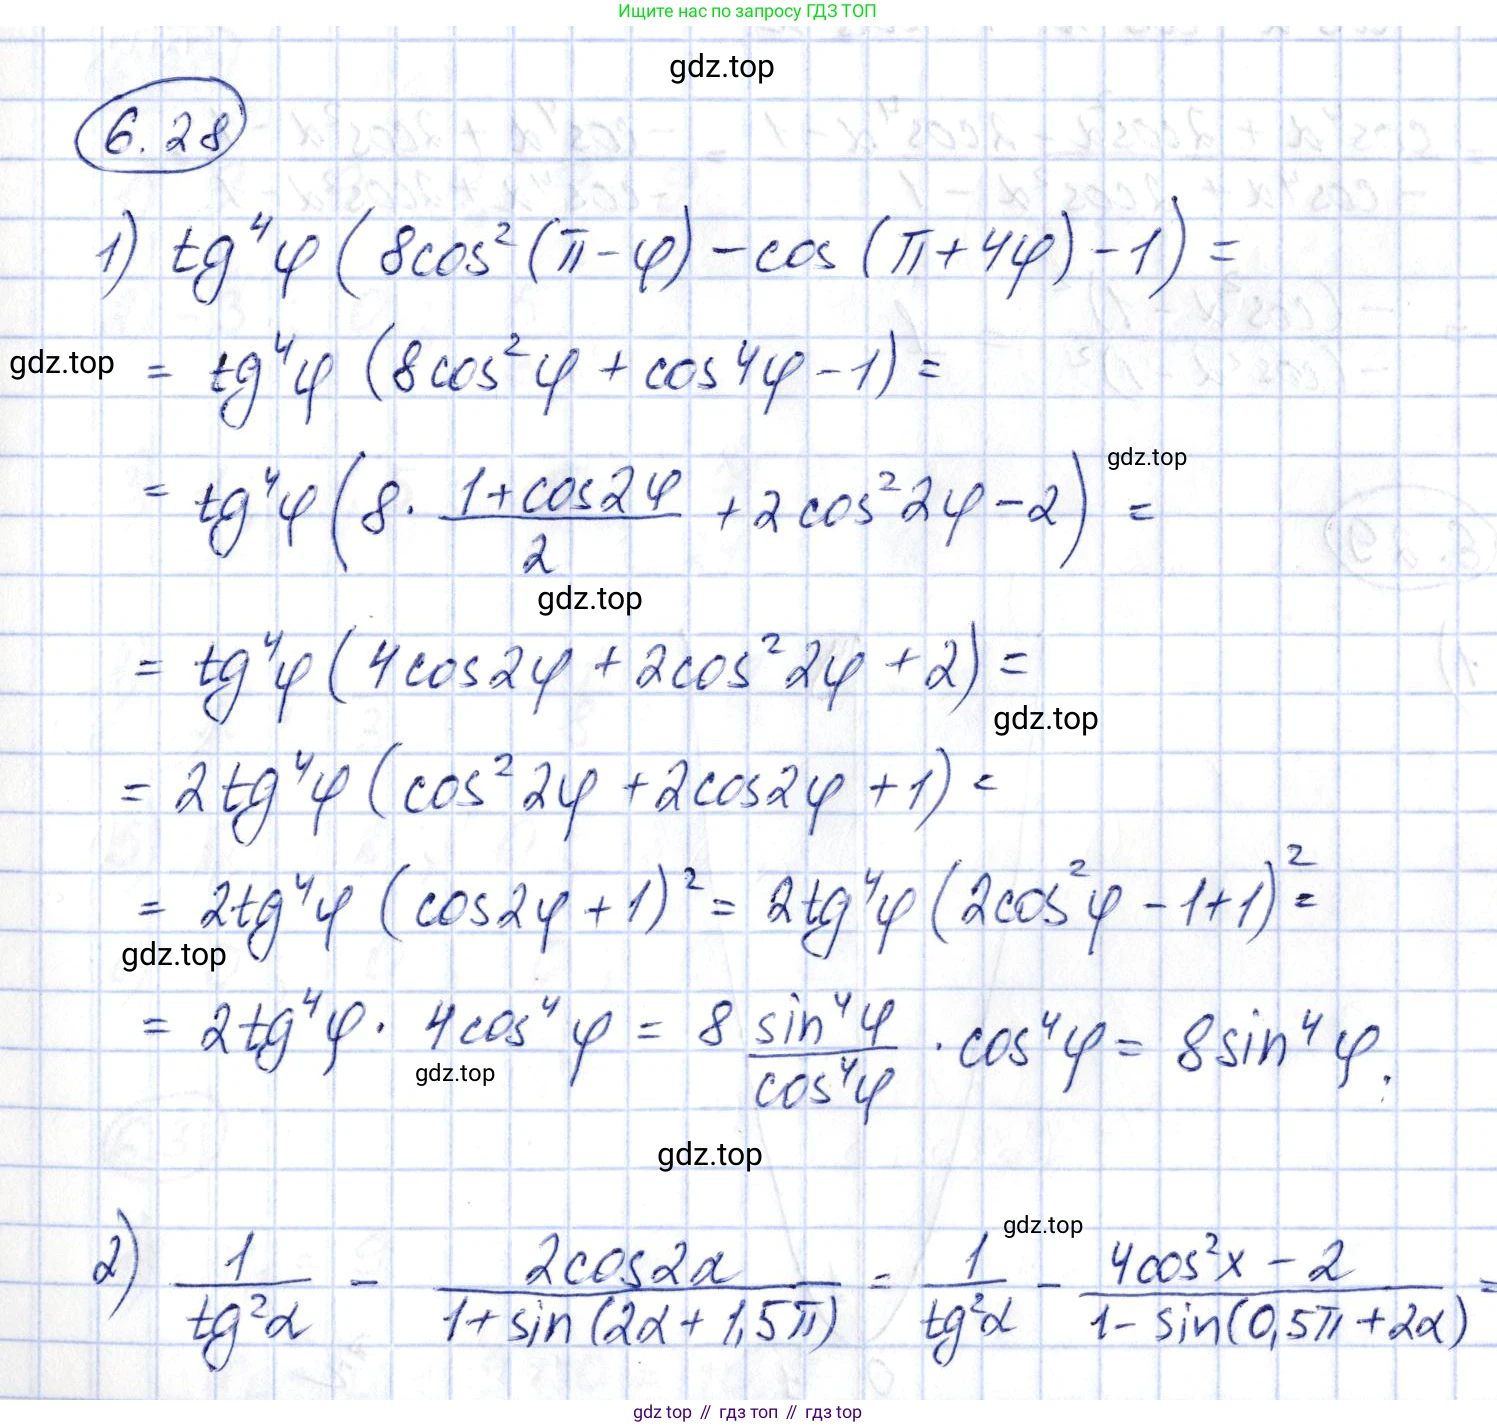 Ищите нас по запросу ГДЗ ТОП
gdz.top
6.28
1) tg⁴φ (8cos²(π-φ) - cos(π+4φ) - 1) =
gdz.top
= tg⁴φ (8cos²φ + cos4φ - 1) =
gdz.top
= tg⁴φ (8 · (1+cos2φ)/2 + 2cos²2φ - 2) =
gdz.top
= tg⁴φ (4cos2φ + 2cos²2φ + 2) =
gdz.top
= 2tg⁴φ (cos²2φ + 2cos2φ + 1) =
= 2tg⁴φ (cos2φ + 1)² = 2tg⁴φ (2cos²φ - 1 + 1)² =
gdz.top
= 2tg⁴φ · 4cos⁴φ = 8 sin⁴φ/cos⁴φ · cos⁴φ = 8sin⁴φ.
gdz.top
gdz.top
gdz.top
2) 1/tg²α - 2cos2α/(1+sin(2α+1,5π)) = 1/tg²α - (4cos²x - 2)/(1-sin(0,5π+2α)) =
gdz top // гдз топ // гдз top